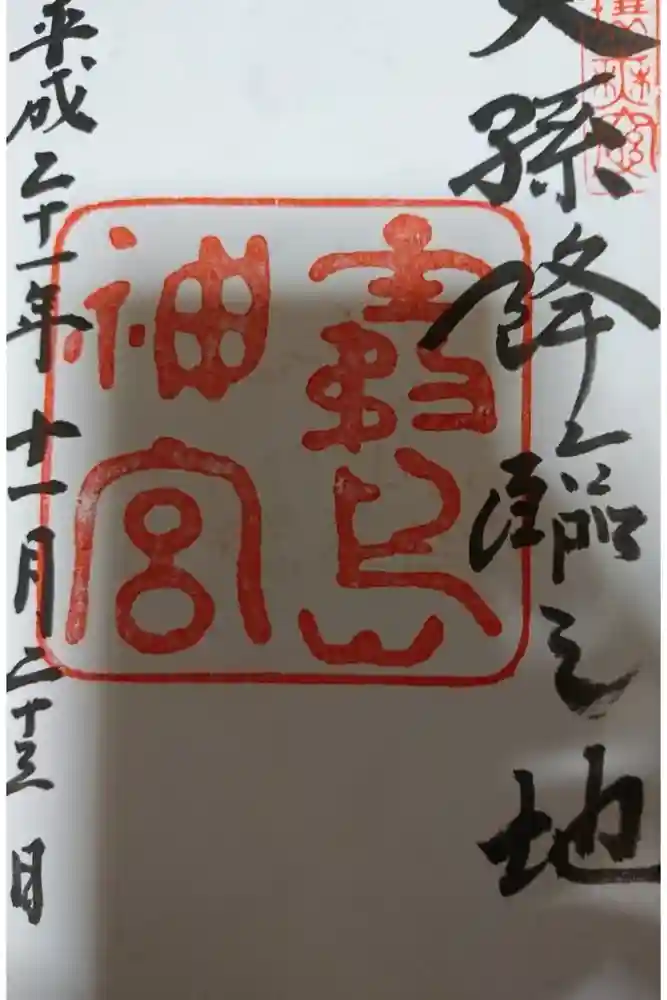 天孫降臨之地
霧島
神宮
平成二十一年十一月二十三日